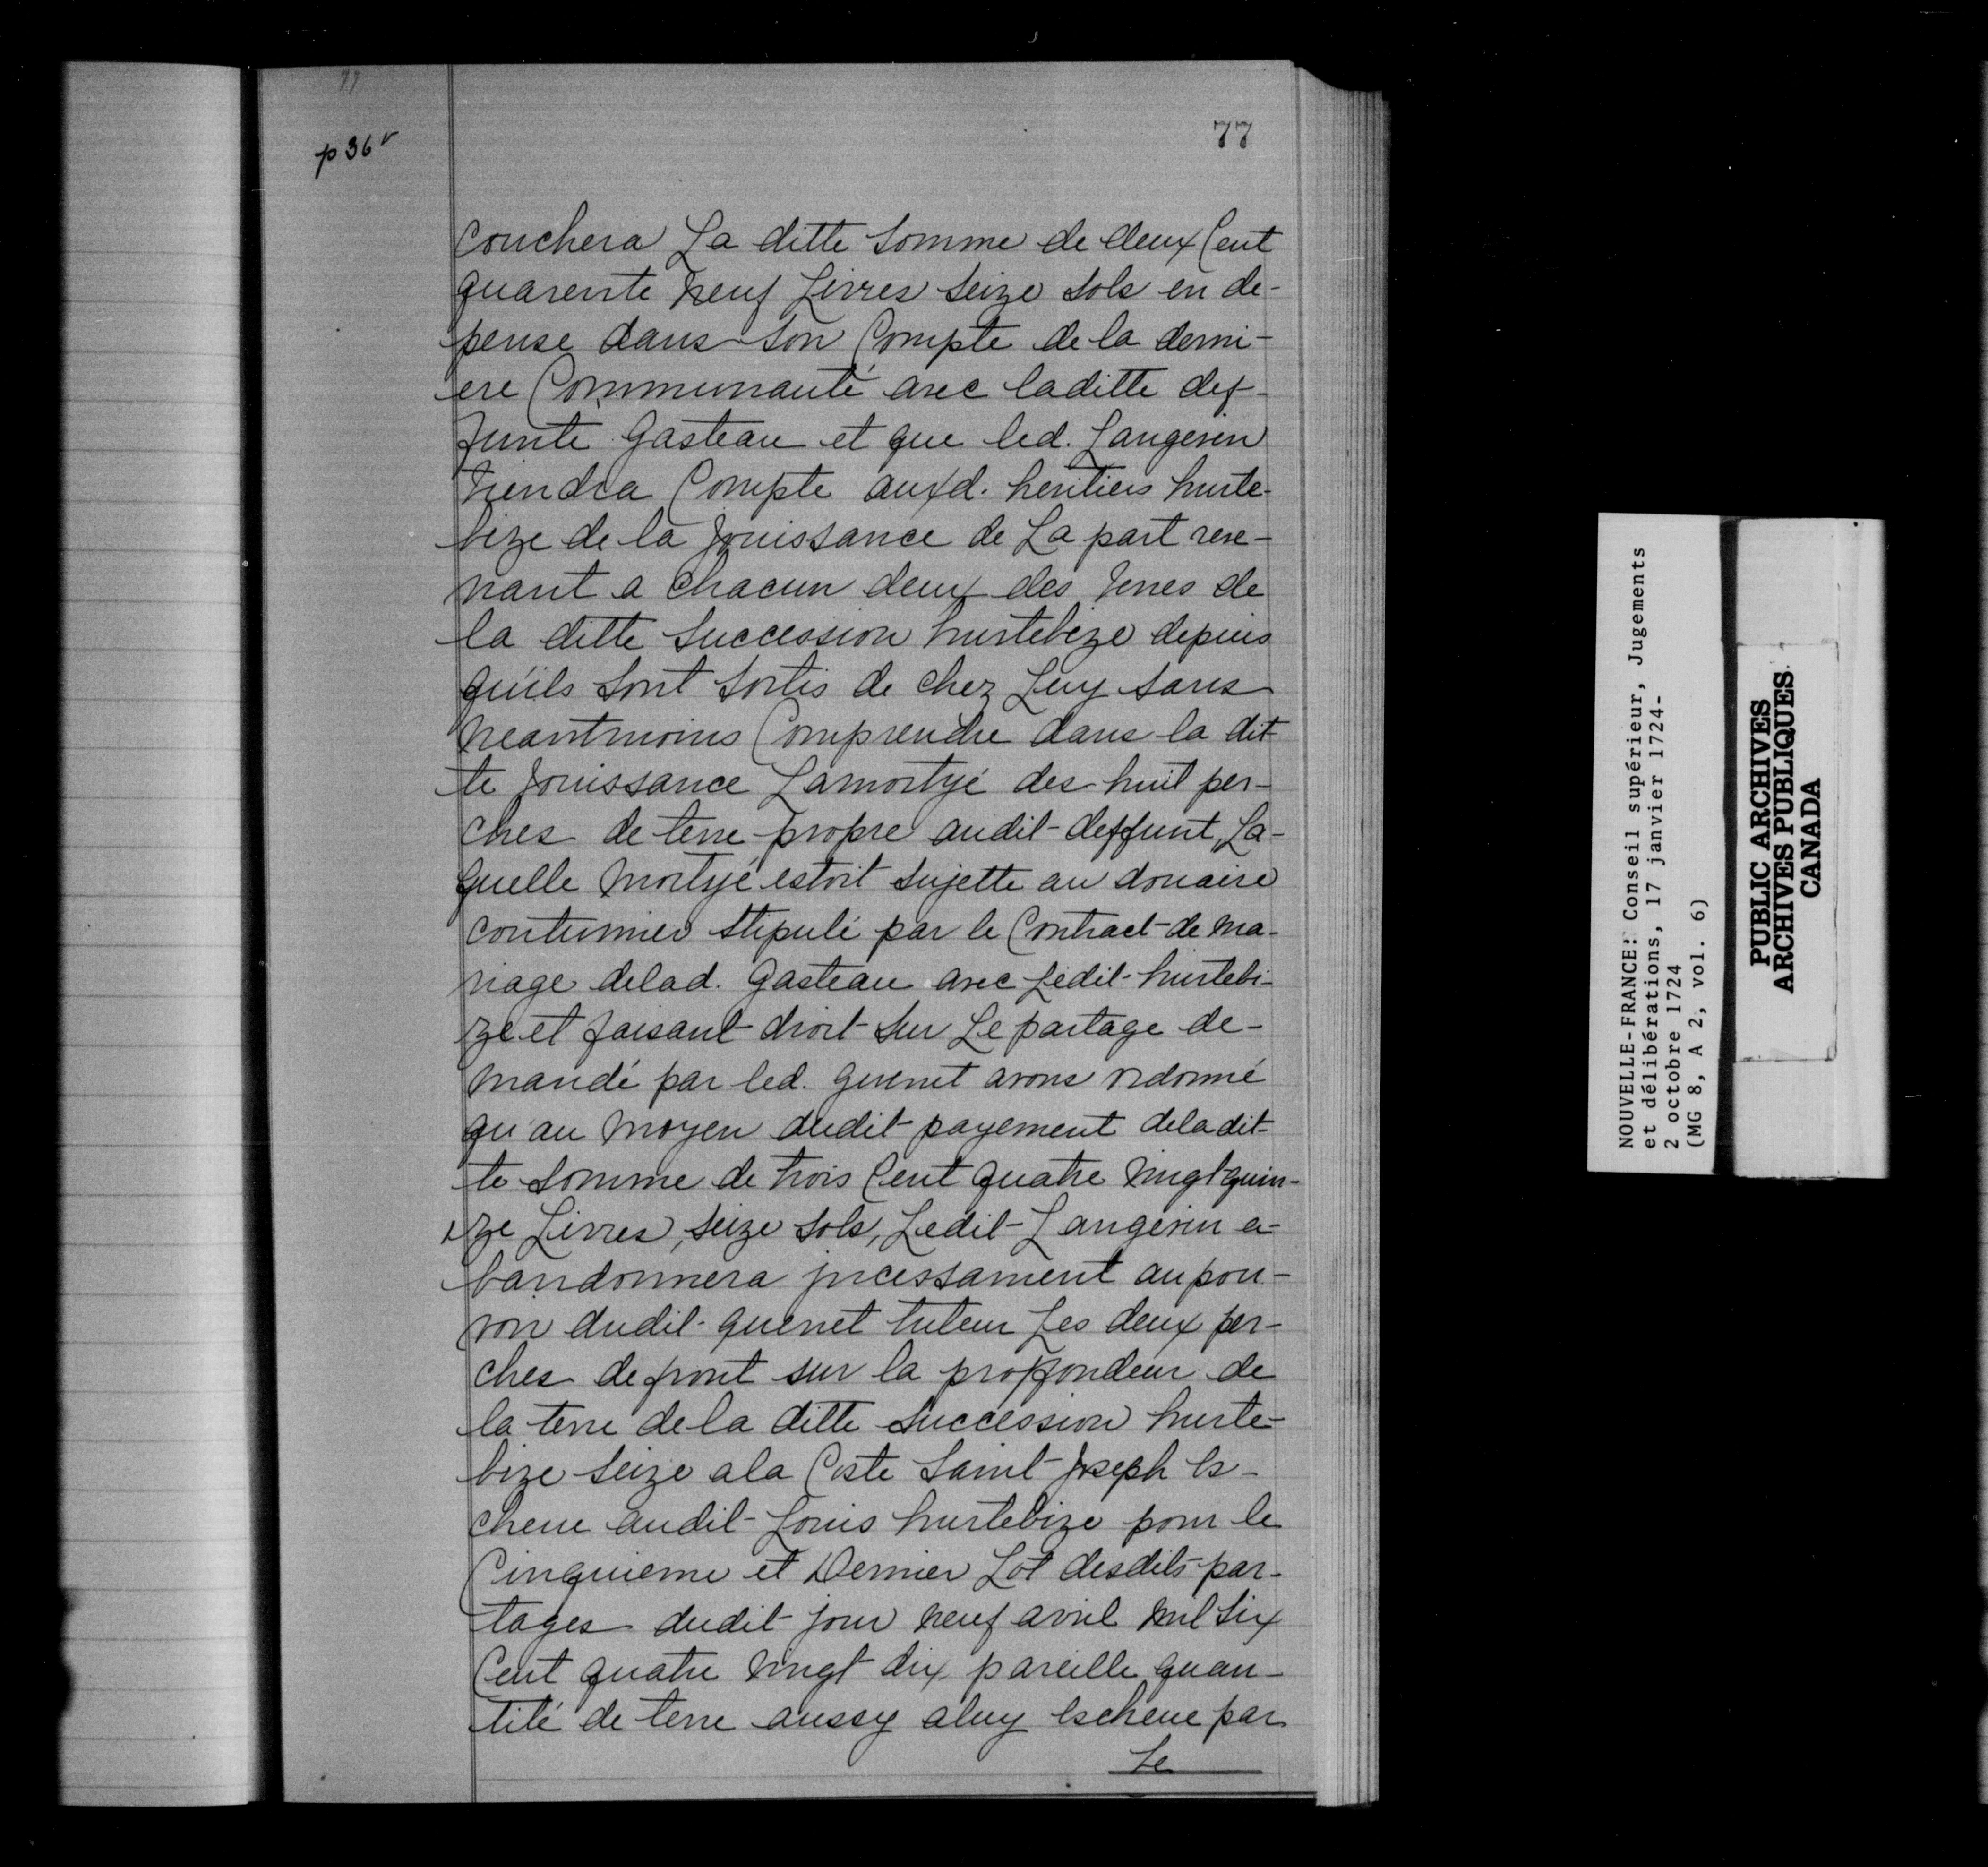 77
p 36 v
77
couchera La ditte Somme de deux Cent
quarente neuf Livres Seize Sols en de-
pense dans son Compte de la derni-
ere Communauté avec laditte def-
funte Gasteau et que led. Langevin
tiendra Compte auxd. heritiers hurte-
bize de la Jouissance de La part reve-
nant a chacun deux des terres de
la ditte Succession hurtebize depuis
qu'ils Sont Sortis de chez Luy Sans
neantmoins Comprendre dans la dit
te Jouissance Lamoityé des huit per-
ches de terre propre audit deffunt, La-
quelle moityé estoit Sujette au douaire
coutumier Stipulé par le Contract de ma-
riage delad. Gasteau avec Ledit hurtebi-
ze et faisant droit Sur Le partage de-
mandé par led. quenet avons ordonné
qu'au moyen dudit payement deladit-
te Somme de trois Cent quatre vingt quin-
ze Livres, Seize Sols, Ledit Langevin a-
bandonnera jncessament au pou-
voir dudit quenet tuteur Les deux per-
ches defront sur la proffondeur de
la terre de la ditte Succession hurte-
bize Seize ala Coste Saint Joseph Es-
cheue audit Louis hurtebize pour le
Cinquieme et Dernier Lot desdits par-
tages dudit jour neuf avril mil Six
Cent quatre vingt dix pareille quan-
tité de terre aussy aluy escheue par
Le
NOUVELLE-FRANCE: Conseil supérieur, Jugements
et délibérations, 17 janvier 1724-
2 octobre 1724
(MG 8, A 2, vol. 6)
PUBLIC ARCHIVES
ARCHIVES PUBLIQUES
CANADA